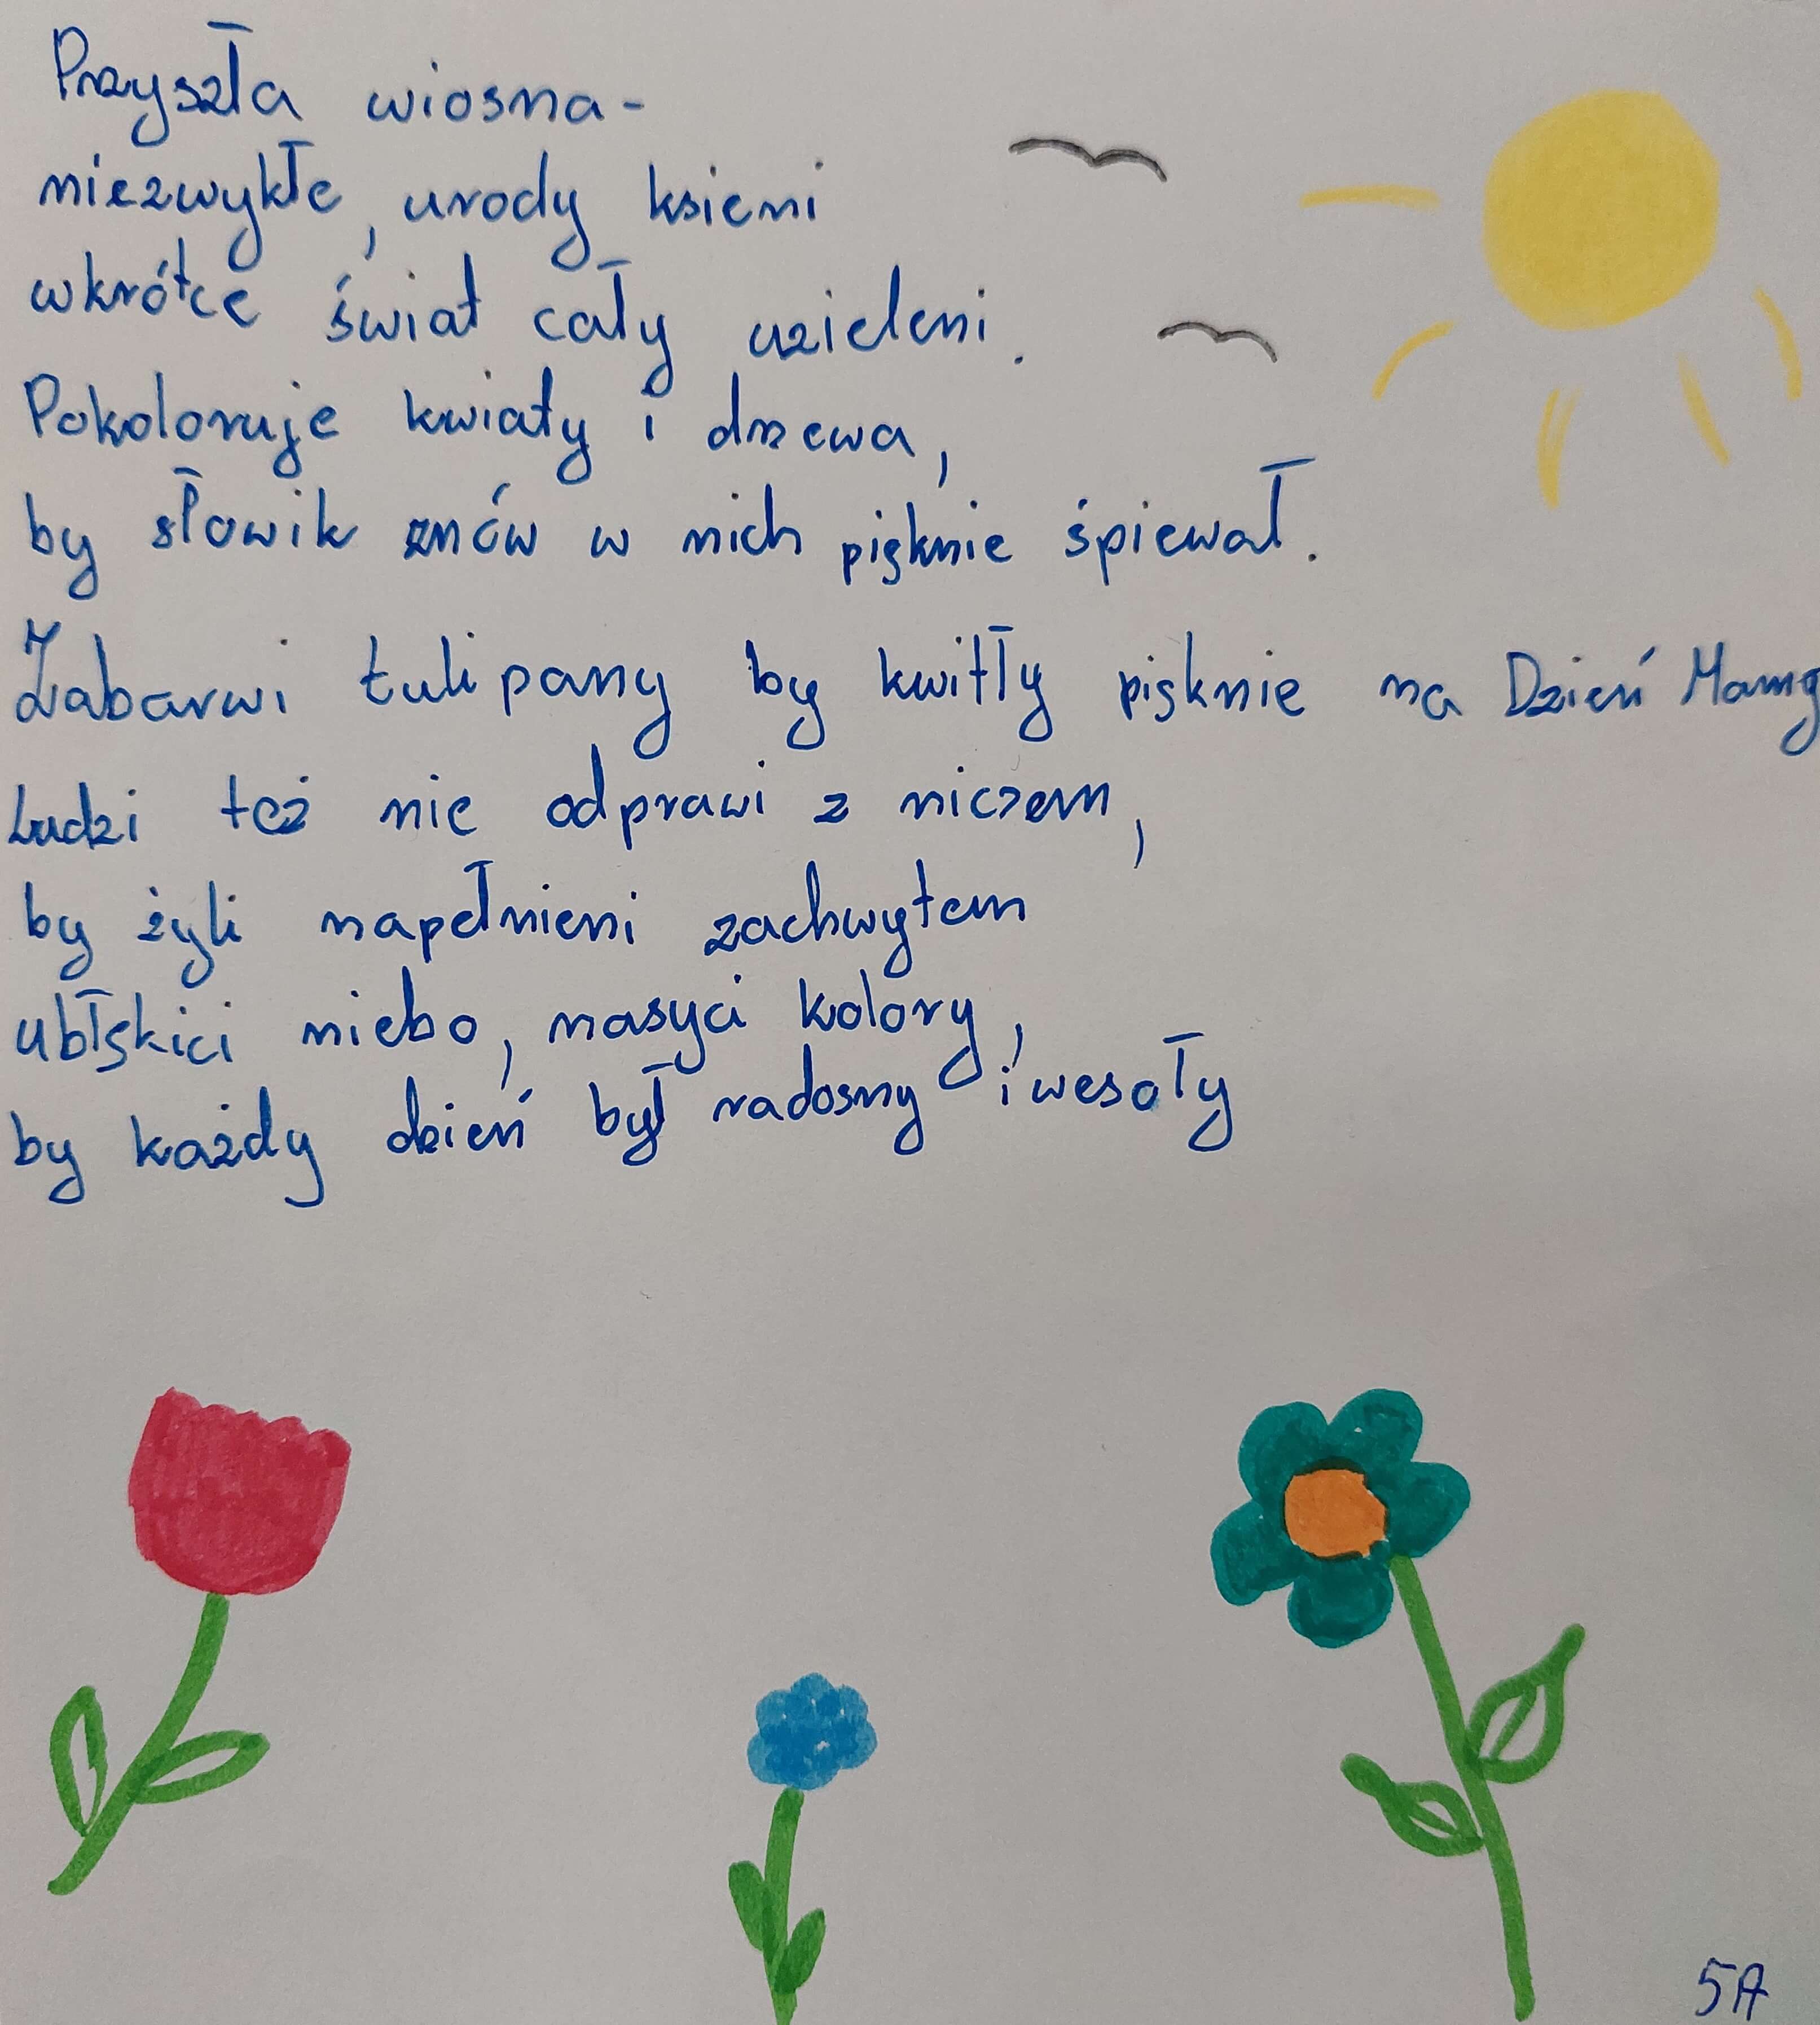 Przyszła wiosna-
niezwykłe, urody ksieni
wkrótce świat cały uzieleni.
Pokoloruje kwiaty i drzewa,
by słowik znów w nich pięknie śpiewał.
Zabarwi tulipany by kwitły pięknie na Dzień Mamy
Ludzi też nie odprawi z niczem,
by żyli napełnieni zachwytem
ubłękici niebo, nasyci kolory,
by każdy dzień był radosny i wesoły
5A